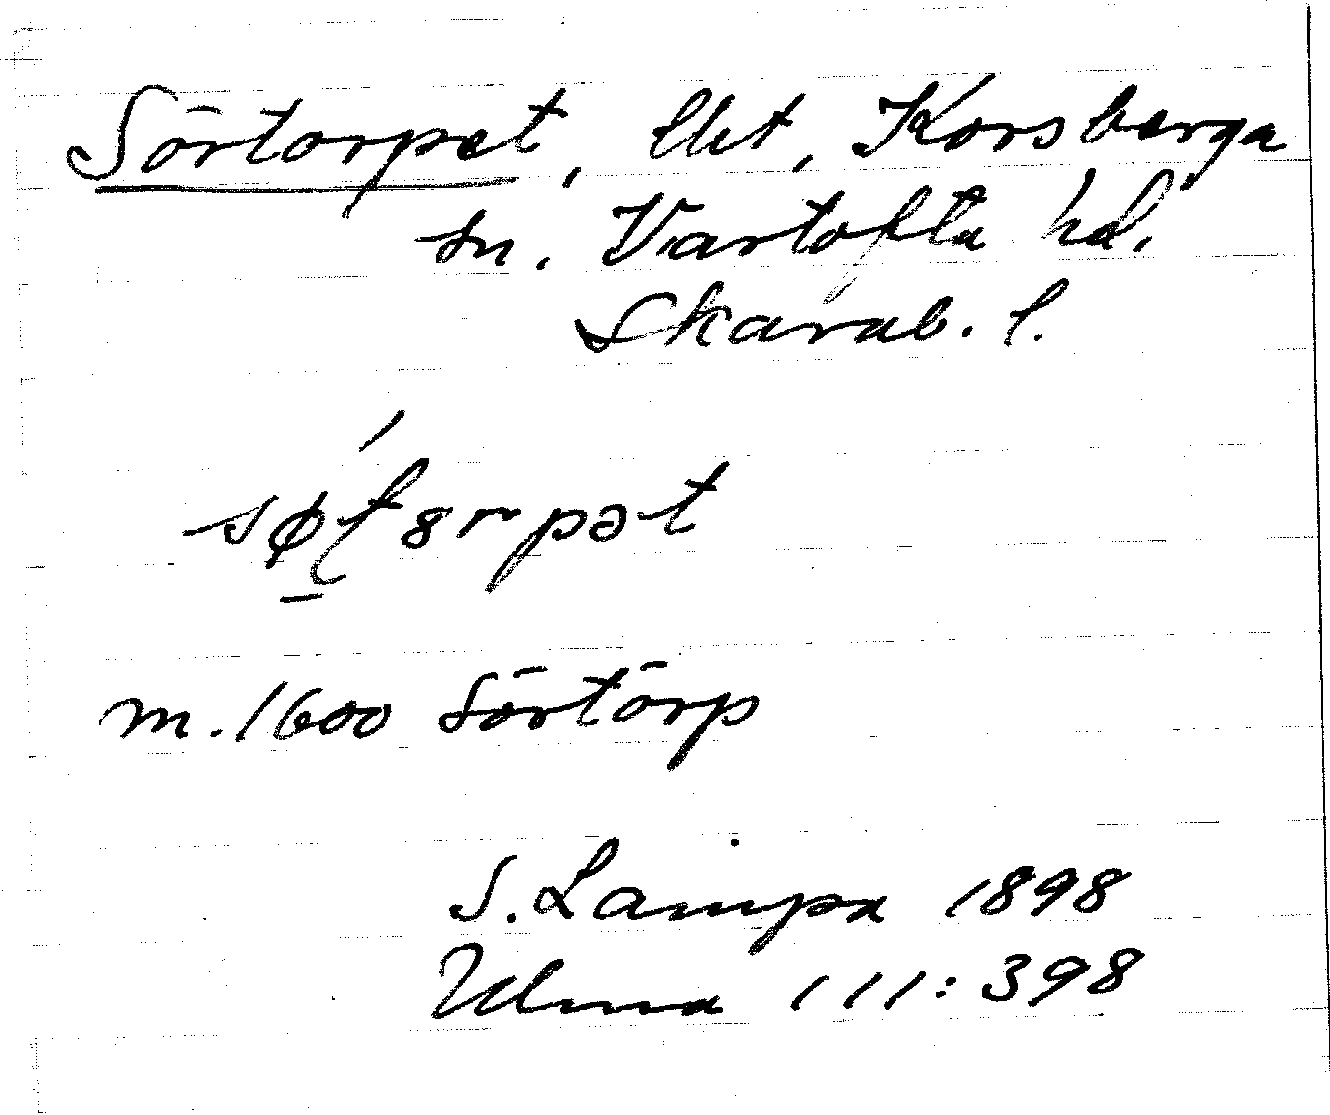 Sörtorpet, lht, Korsberga
sn. Vartofta hd.
Skarab. l.
m. 1600 Sörtörp
S. Lampa 1898
Ulma 111:398